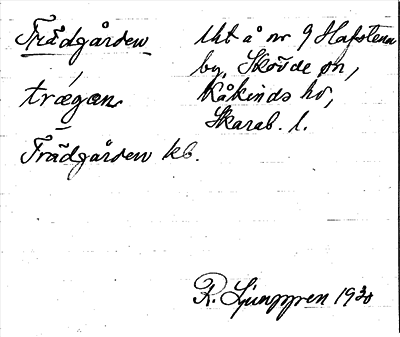 Trädgården
Uht å nr 9 Hafstena
by, Skövde sn,
trǽgan
Kåkinds hd,
Skarab. l.
Trädgården kb.
R. Ljunggren 1930